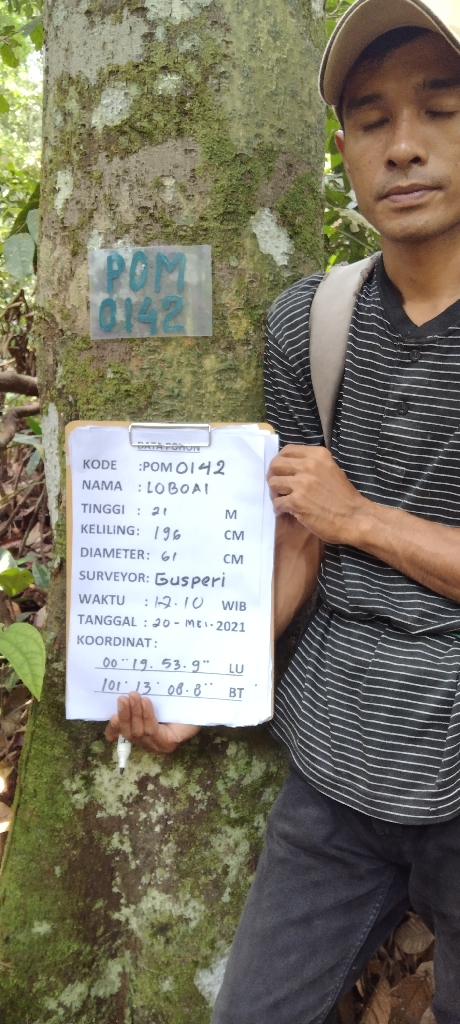 POM
0142
DATA POHON
KODE :POM0142
NAMA : LOBOAI
TINGGI : 21 M
KELILING: 196 CM
DIAMETER: 61 CM
SURVEYOR: Gusperi
WAKTU : 12.10 WIB
TANGGAL : 20-MEI-2021
KOORDINAT:
00° 19. 53.9" LU
101° 13' 08.8" BT